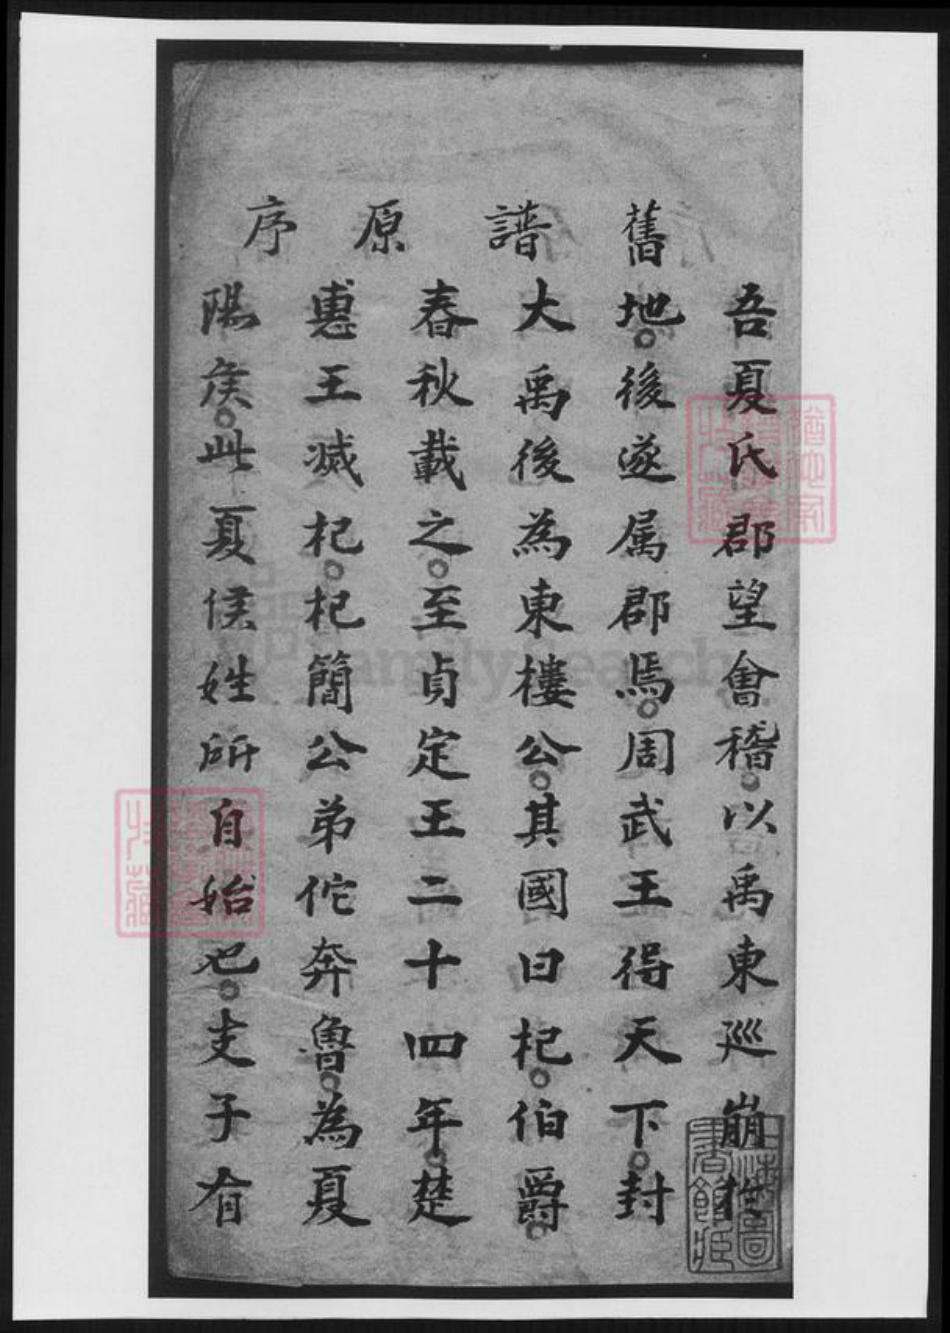 舊譜原序
吾夏氏郡望會稽。以禹東巡崩於
地。後遂属郡焉。周武王得天下。封
大禹後為東樓公。其國曰杞。伯爵。
春秋載之。至貞定王二十四年。楚
惠王滅杞。杞簡公弟佗奔魯。為夏
陽侯。此夏侯姓所自始也。支子有
上海圖書館藏
familysearch